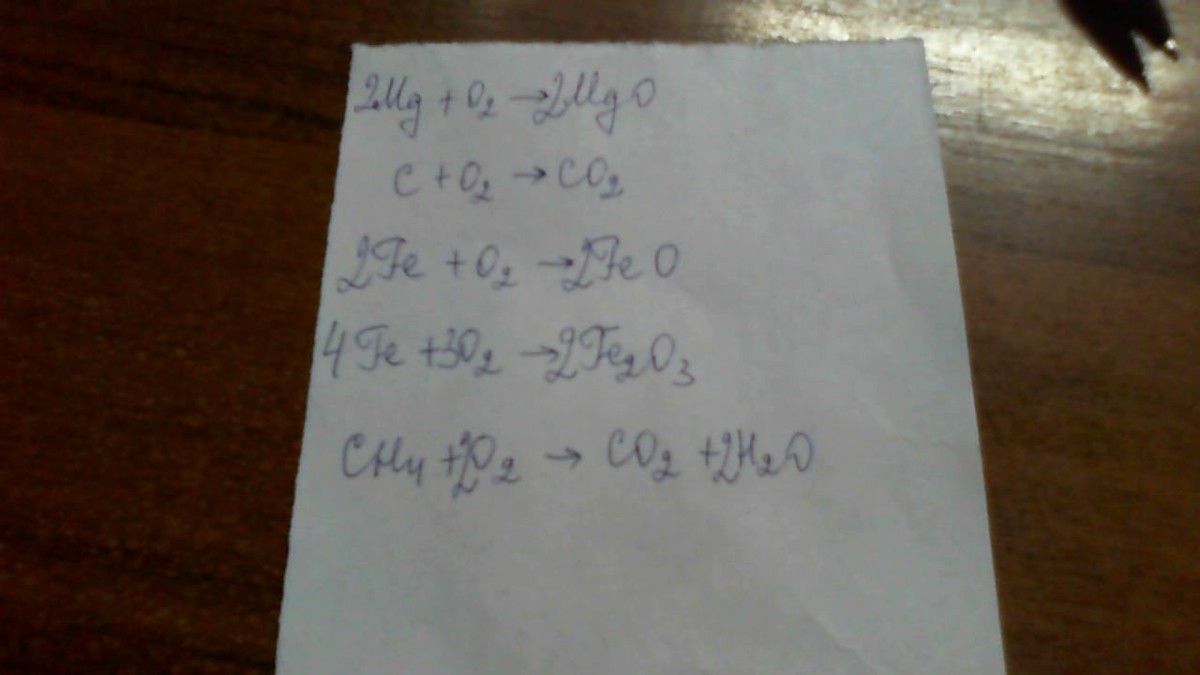 2Mg + O₂ → 2MgO
C + O₂ → CO₂
2Fe + O₂ → 2FeO
4Fe + 3O₂ → 2Fe₂O₃
CH₄ + 2O₂ → CO₂ + 2H₂O